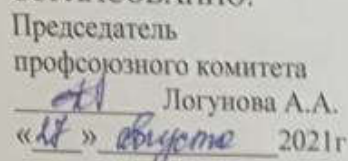 СОГЛАСОВАНО:
Председатель
профсоюзного комитета
Логунова А.А.
«27» августа 2021г